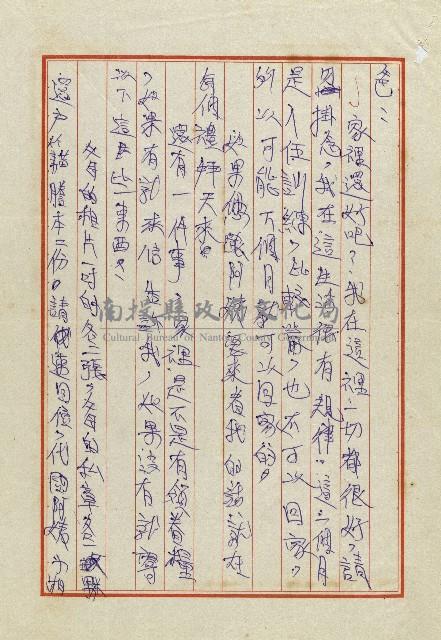 爸:
家裡還好吧?我在這裡一切都很好,請
掛急,我在這生活很有規律。這三個月
是入伍訓練,比較嚴,也不可以回家。
所以可能下個月就可以回家的。
如果你跟阿 要來看我的話就在
每個禮拜天來。
還有一件事,家裡是不是有領眷糧
,如果有就來信告訴我,如果沒有就寄
以下這些東西:
父母的相片一吋的各二張。父母的私章各
戶籍謄本二份。請 回信,代 阿
南投縣政府文化局
Cultural Bureau of Nantou County Government